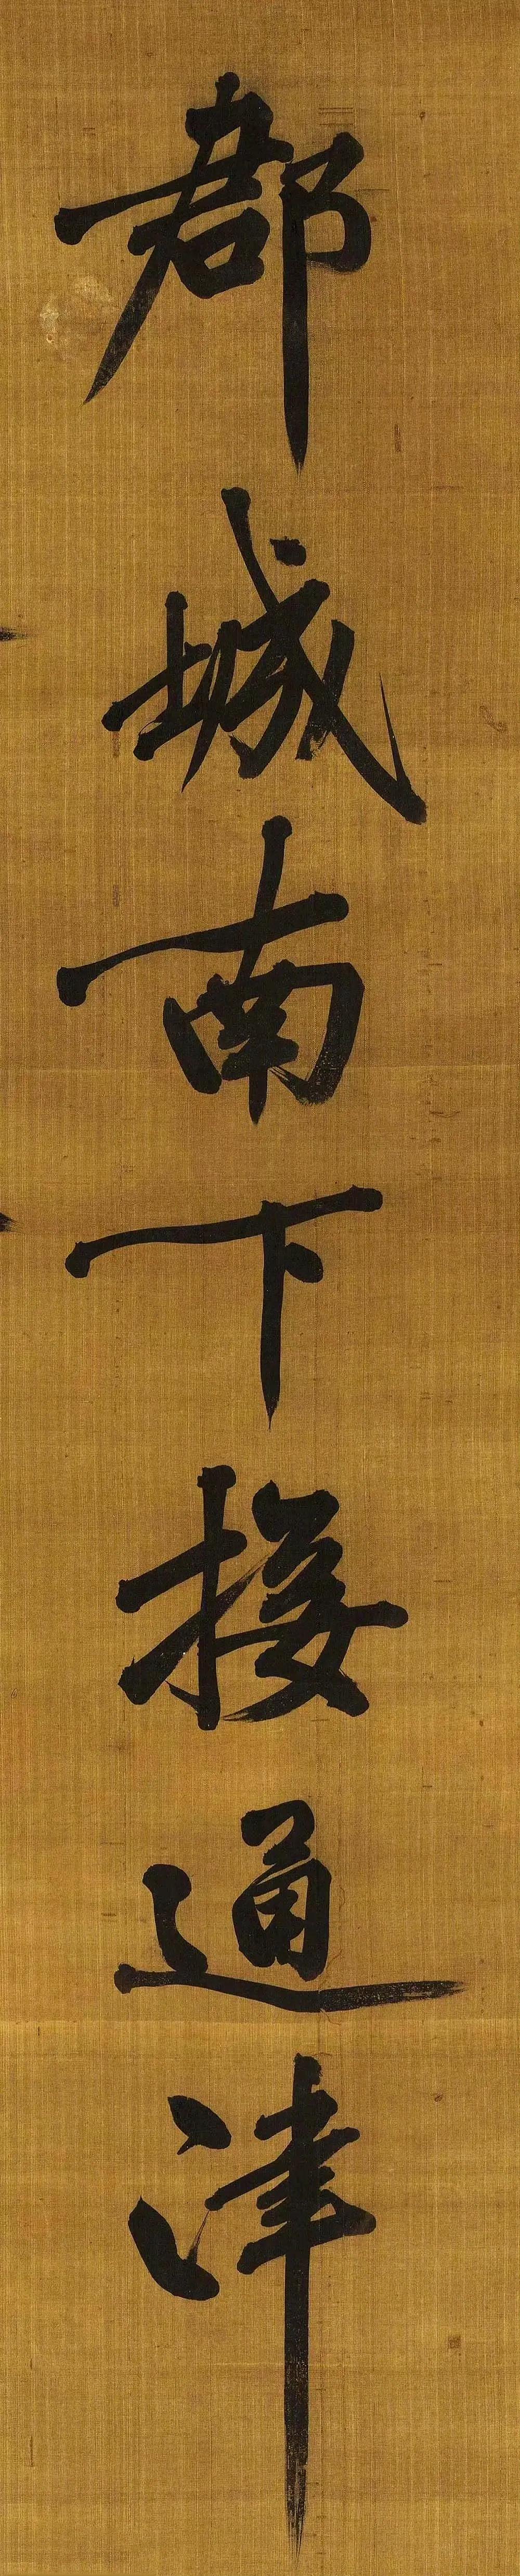 都城南下接通津